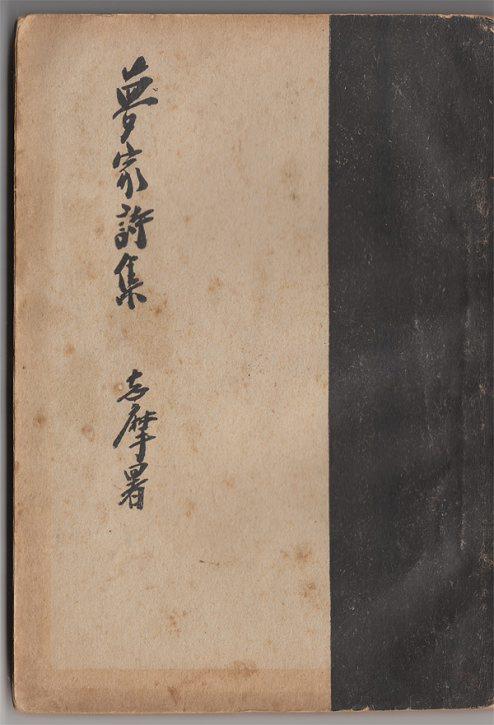 夢家詩集
志摩署